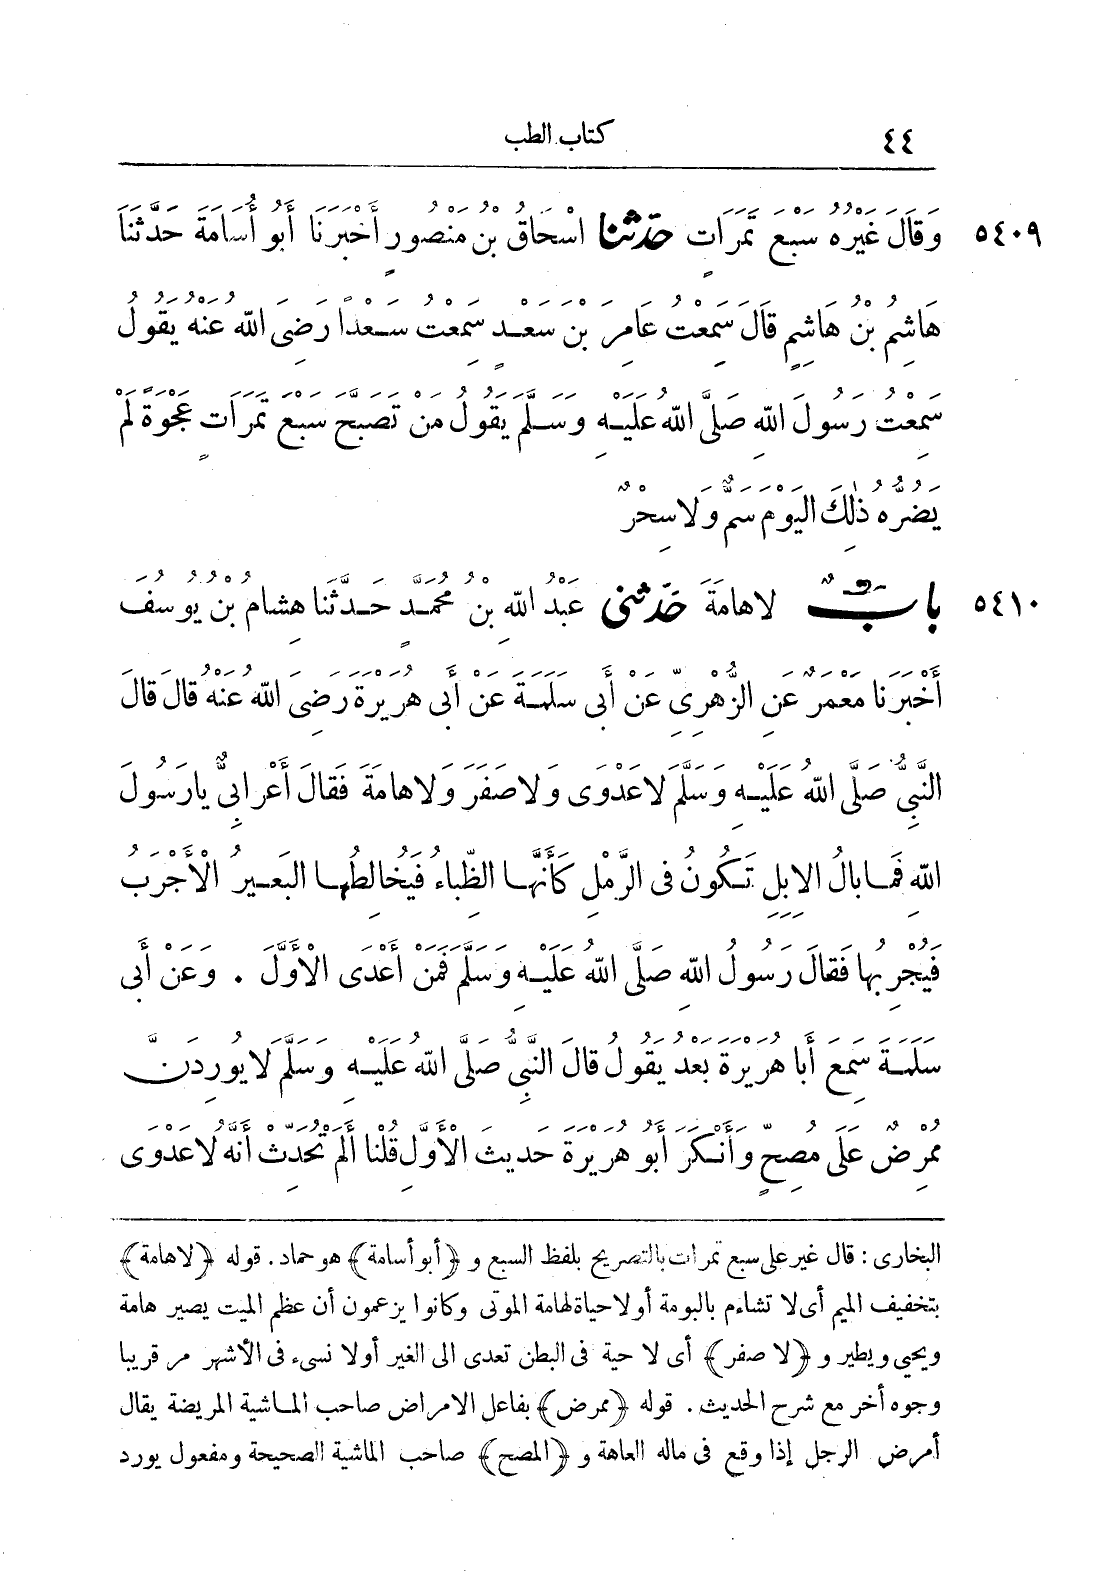 ٤٤ كتاب الطب
٥٤٠٩ وَقَالَ غَيْرُهُ سَبْعَ تَمَرَاتٍ حَدَّثَنَا اسْحَاقُ بْنُ مَنْصُورٍ أَخْبَرَنَا أَبُو أُسَامَةَ حَدَّثَنَا
هَاشِمُ بْنُ هَاشِمٍ قَالَ سَمِعْتُ عَامِرَ بْنَ سَعْدٍ سَمِعْتُ سَعْدًا رَضِىَ اللهُ عَنْهُ يَقُولُ
سَمِعْتُ رَسُولَ اللهِ صَلَّى اللهُ عَلَيْهِ وَسَلَّمَ يَقُولُ مَنْ تَصَبَّحَ سَبْعَ تَمَرَاتٍ عَجْوَةً لَمْ
يَضُرُّهُ ذٰلِكَ الْيَوْمَ سَمٌّ وَلَا سِحْرٌ
٥٤١٠ بابٌ لاهَامَةَ حَدَّثَنِى عَبْدُ اللهِ بْنُ مُحَمَّدٍ حَدَّثَنَا هِشَامُ بْنُ يُوسُفَ
أَخْبَرَنَا مَعْمَرٌ عَنِ الزُّهْرِىِّ عَنْ أَبِى سَلَمَةَ عَنْ أَبِى هُرَيْرَةَ رَضِىَ اللهُ عَنْهُ قَالَ قَالَ
النَّبِىُّ صَلَّى اللهُ عَلَيْهِ وَسَلَّمَ لاعَدْوَى وَلاصَفَرَ وَلاهَامَةَ فَقَالَ أَعْرَابِىٌّ يارَسُولَ
اللهِ فَمَا بَالُ الابِلِ تَكُونُ فِى الرَّمْلِ كَأَنَّهَا الظِّبَاءُ فَيُخَالِطُهَا البَعِيرُ الْأَجْرَبُ
فَيُجْرِبُهَا فَقَالَ رَسُولُ اللهِ صَلَّى اللهُ عَلَيْهِ وَسَلَّمَ فَمَنْ أَعْدَى الْأَوَّلَ . وَعَنْ أَبِى
سَلَمَةَ سَمِعَ أَبَا هُرَيْرَةَ بَعْدُ يَقُولُ قَالَ النَّبِىُّ صَلَّى اللهُ عَلَيْهِ وَسَلَّمَ لَا يُورِدَنَّ
مُمْرِضٌ عَلَى مُصِحٍّ وَأَنْكَرَ أَبُو هُرَيْرَةَ حَدِيثَ الْأَوَّلِ قُلْنَا أَلَمْ تُحَدِّثْ أَنَّهُ لاعَدْوَى
البخارى : قال غير على سبع تمرات بالتصريح بلفظ السبع و ﴿أبو أسامة﴾ هو حماد . قوله ﴿لا هامة﴾
بتخفيف الميم أى لا تشاءم بالبومة أو لا حياة لهامة الموتى وكانوا يزعمون أن عظم الميت يصير هامة
ويحيى ويطير و ﴿لا صفر﴾ أى لا حية فى البطن تعدى الى الغير أولا نسىء فى الأشهر مر قريبا
وجوه أخر مع شرح الحديث . قوله ﴿ممرض﴾ بفاعل الامراض صاحب الماشية المريضة يقال
أمرض الرجل إذا وقع فى ماله العاهة و ﴿المصح﴾ صاحب الماشية الصحيحة ومفعول يورد